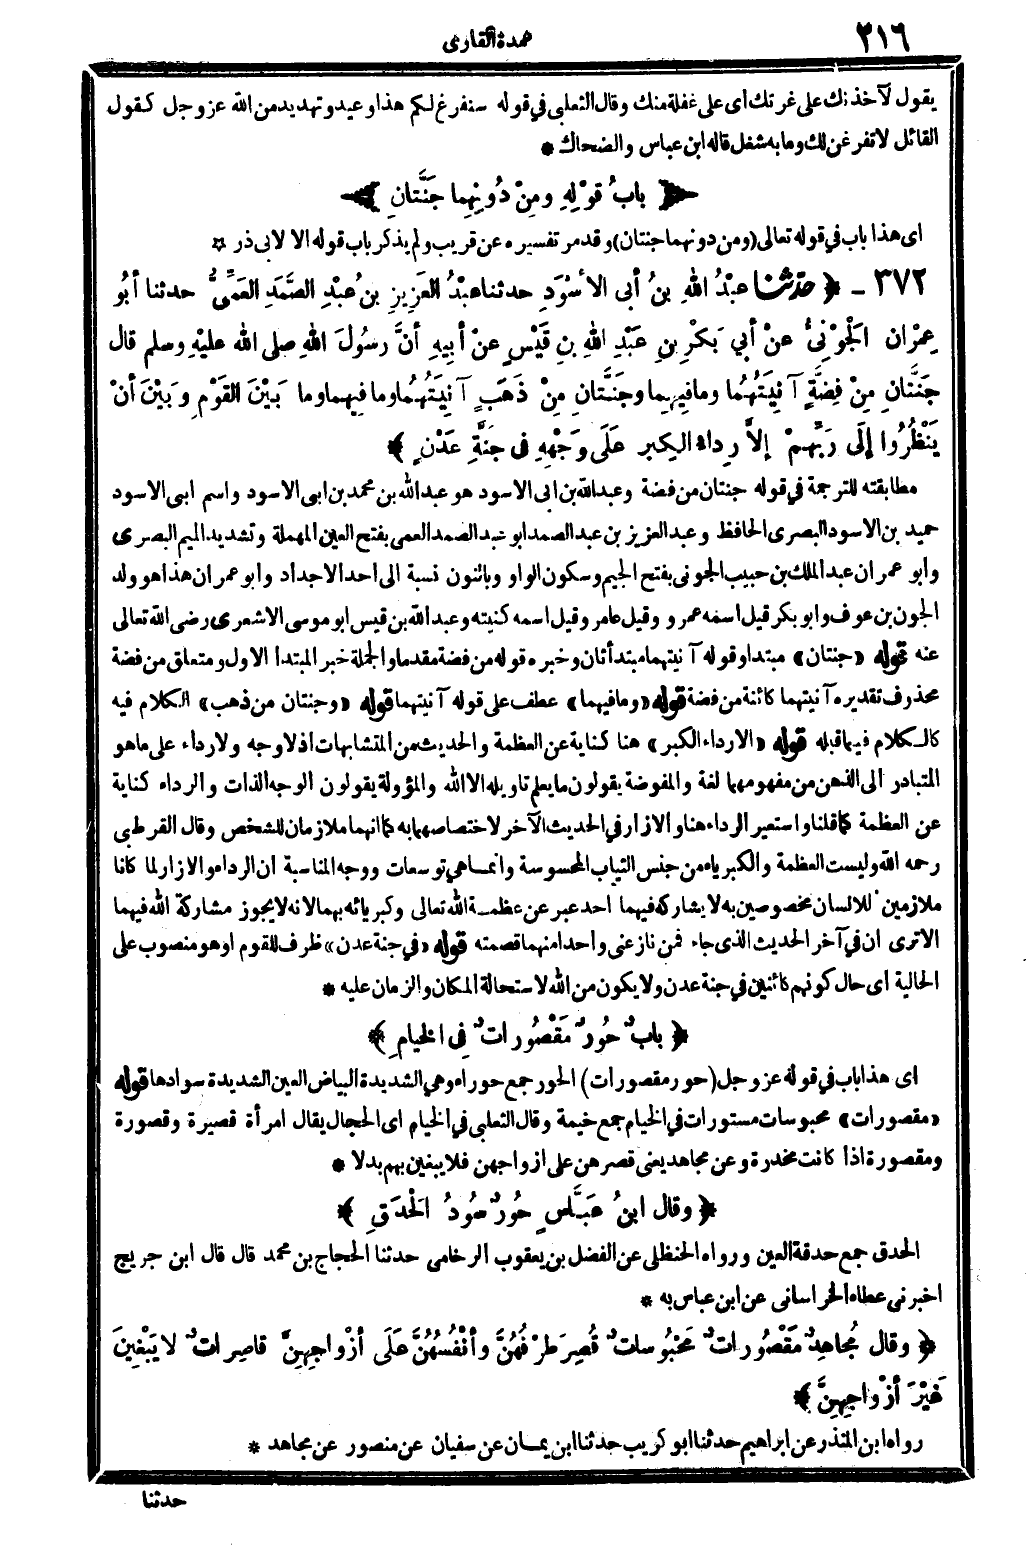 ٢١٦
عمدة القارى
يقول لآخذنك على غرتك اى على غفلة منك وقال الثعلبى فى قوله سنفرغ لكم هذا وعيد وتهديد من الله عز وجل كقول
القائل لاتفرغن لك وما به شغل قاله ابن عباس والضحاك *
﴿ بابُ قوْلِهِ ومِنْ دُونِهِما جَنَّتانِ ﴾
اى هذا باب فى قوله تعالى (ومن دونهما جنتان) وقد مر تفسيره عن قريب ولم يذكر باب قوله الا لابى ذر *
٣٧٢ ـ ﴿ حدّثنا عبْدُ اللهِ بنُ أبى الأسْوَدِ حدثنا عبْدُ العَزِيزِ بنُ عبْدِ الصَّمَدِ العَمِّىُّ حدثنا أبُو
عِمْرَانَ الجَوْنِىُّ عنْ أبي بَكْرِ بنِ عَبْدِ اللهِ بنِ قَيْسٍ عنْ أبِيهِ أنَّ رسُولَ اللهِ صلى الله عليْهِ وسلم قال
جَنَّتانِ مِنْ فِضَّةٍ آنِيَتُهُما وما فِيهِما وجَنَّتانِ مِنْ ذَهَبٍ آنِيَتُهُما وما فِيهِما وما بَيْنَ القَوْمِ وَبَيْنَ أنْ
يَنْظُرُوا إلَى رَبِّهِمْ إلاَّ رِداءُ الكِبرِ عَلَى وَجْهِهِ فى جَنَّةِ عَدْنٍ ﴾
مطابقته للترجمة فى قوله جنتان من فضة وعبدالله بن ابى الاسود هو عبدالله بن محمد بن ابى الاسود واسم ابى الاسود
حميد بن الاسود البصرى الحافظ وعبد العزيز بن عبد الصمد ابو عبد الصمد العمى بفتح العين المهملة وتشديد الميم البصرى
وابو عمران عبد الملك بن حبيب الجونى بفتح الجيم وسكون الواو وبالنون نسبة الى احد الاجداد وابو عمران هذا هو ولد
الجون بن عوف وابو بكر قيل اسمه عمرو وقيل عامر وقيل اسمه كنيته وعبد الله بن قيس ابو موسى الاشعرى رضى الله تعالى
عنه قوله «جنتان» مبتدا وقوله آنيتهما مبتدأ ثان وخبره قوله من فضة مقدما والجملة خبر المبتدا الاول ومتعلق من فضة
محذوف تقديره آنيتهما كائنة من فضة قوله «وما فيهما» عطف على قوله آنيتهما قوله «وجنتان من ذهب» الكلام فيه
كالكلام فيما قبله قوله «الا رداء الكبر» هنا كناية عن العظمة والحديث من المتشابهات اذ لا وجه ولا رداء على ما هو
المتبادر الى الذهن من مفهومهما لغة والمفوضة يقولون ما يعلم تاويله الا الله والمؤولة يقولون الوجه الذات والرداء كناية
عن العظمة كما قلنا واستعير الرداء هنا والازار فى الحديث الآخر لاختصاصهما به كما انهما ملازمان للشخص وقال القرطبى
رحمه الله وليست العظمة والكبرياء من جنس الثياب المحسوسة وانما هى توسعات ووجه المناسبة ان الرداء والازار لما كانا
ملازمين للانسان مخصوصين به لا يشاركه فيهما احد عبر عن عظمة الله تعالى وكبريائه بهما لانه لا يجوز مشاركة الله فيهما
الا ترى ان فى آخر الحديث الذى جاء فمن نازعنى واحدا منهما قصمته قوله «فى جنة عدن» ظرف للقوم او هو منصوب على
الحالية اى حال كونهم كائنين فى جنة عدن ولا يكون من الله لاستحالة المكان والزمان عليه *
﴿ بابٌ حُورٌ مَقْصُوراتٌ فِى الخِيامِ ﴾
اى هذا باب فى قوله عز وجل (حور مقصورات) الحور جمع حوراء وهى الشديدة البياض العين الشديدة سوادها قوله
«مقصورات» محبوسات مستورات فى الخيام جمع خيمة وقال الثعلبى فى الخيام اى الحجال يقال امرأة قصيرة وقصورة
ومقصورة اذا كانت مخدرة وعن مجاهد يعنى قصرهن على ازواجهن فلا يبغين بهم بدلا *
﴿ وقال ابنُ عَبَّاسٍ حُورٌ سُودُ الحَدَقِ ﴾
الحدق جمع حدقة العين ورواه الحنظلى عن الفضل بن يعقوب الرخامى حدثنا الحجاج بن محمد قال قال ابن جريج
اخبرنى عطاء الخراسانى عن ابن عباس به *
﴿ وقال مُجاهِدٌ مَقْصُوراتٌ مَحْبُوساتٌ قُصِرَ طَرْفُهُنَّ وأنْفُسُهُنَّ عَلَى أزْواجِهِنَّ قاصِراتٌ لا يَبْغِينَ
غَيْرَ أزْواجِهِنَّ ﴾
رواه ابن المنذر عن ابراهيم حدثنا ابو كريب حدثنا ابن يمان عن سفيان عن منصور عن مجاهد *
حدثنا